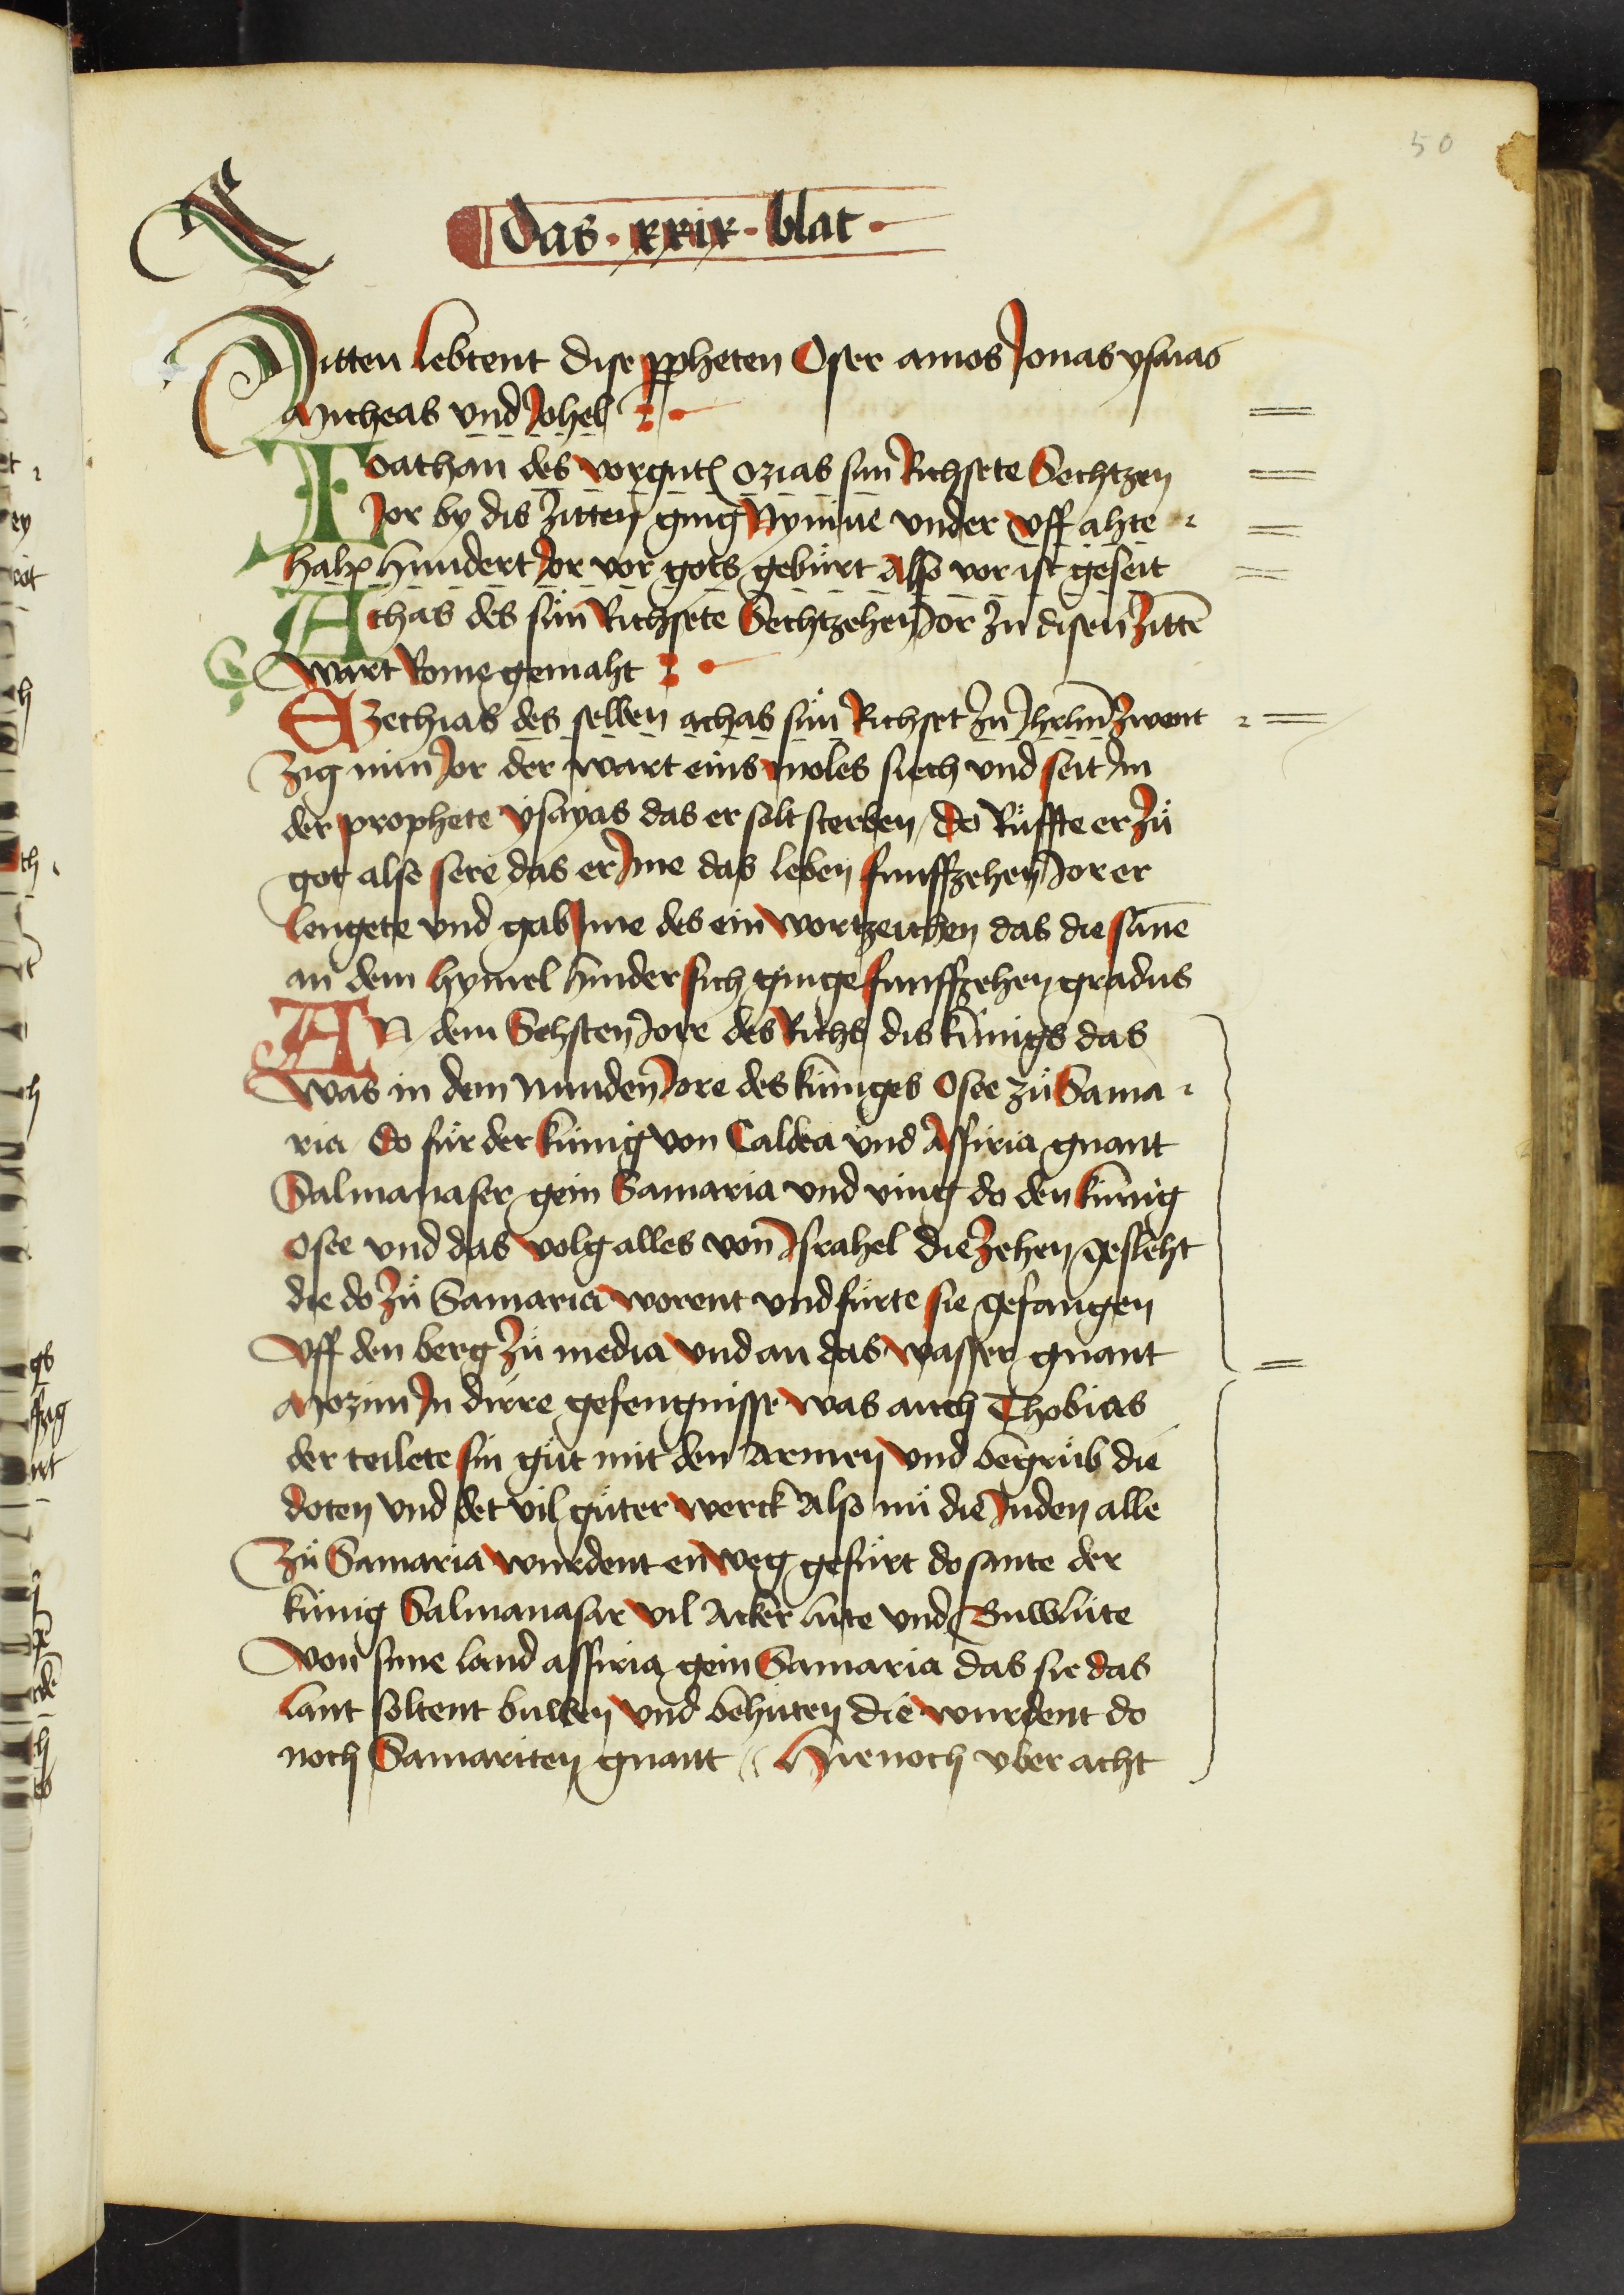 50
das · xxix · blat ·
Zitten lebtent dise ꝓpheten Osee amos Jonas ysaias
Micheas vnd Johel
Ioathan des vorgnten ozias sun Richsete Sechtzen
Jor by dis zitten ging Nyniue vnder vff ahte
halp hundert Jor vor gots gebürt Also vor ist geseit
Achas des sün Richsete Sechtzehen Jor zu disen zittē
wart Rome gemaht
Ezechias des selben achas sün Richset zu Jhrlm̄ zwent
zig nün Jor der wart eins moles siech vnd seit Jm
der prophete ysayas das er solt sterben / do Rüffte er zů
got also sere das er Jme das leben funffzehen Jor er
lengete vnd gab Jme des ein wortzeichen das die sūne
an dem hymel hinder sich ginge funffzehen gradus
AN dem Sehsten Jore des Richs dis künigs das
was in dem Nunden Jore des küniges Osee zů Sama
ria do für der künig von Caldea vnd Assiria gnant
Salmanaser gein Samaria vnd ving do den künig
Osee vnd das volg alles von Jsrahel die zehen geslecht
die do zů Samaria worent vnd fürte sie gefangen
vff den berg zů media vnd an das wasser gnant
Mozim Jn dirre gefengnisse was auch Thobias
der teilete sin gůt mit den Armen vnd begrůb die
doten vnd det vil gůter werck Also nü die Juden alle
zů Samaria wurdent enweg gefürt do sante der
künig Salmanaser vil Acker lüte vnd Buwlüte
von sime land assiria gein Samaria das sie das
lant soltent buwen vnd behüten die wurdent do
noch Samariten gnant Hienoch vber acht